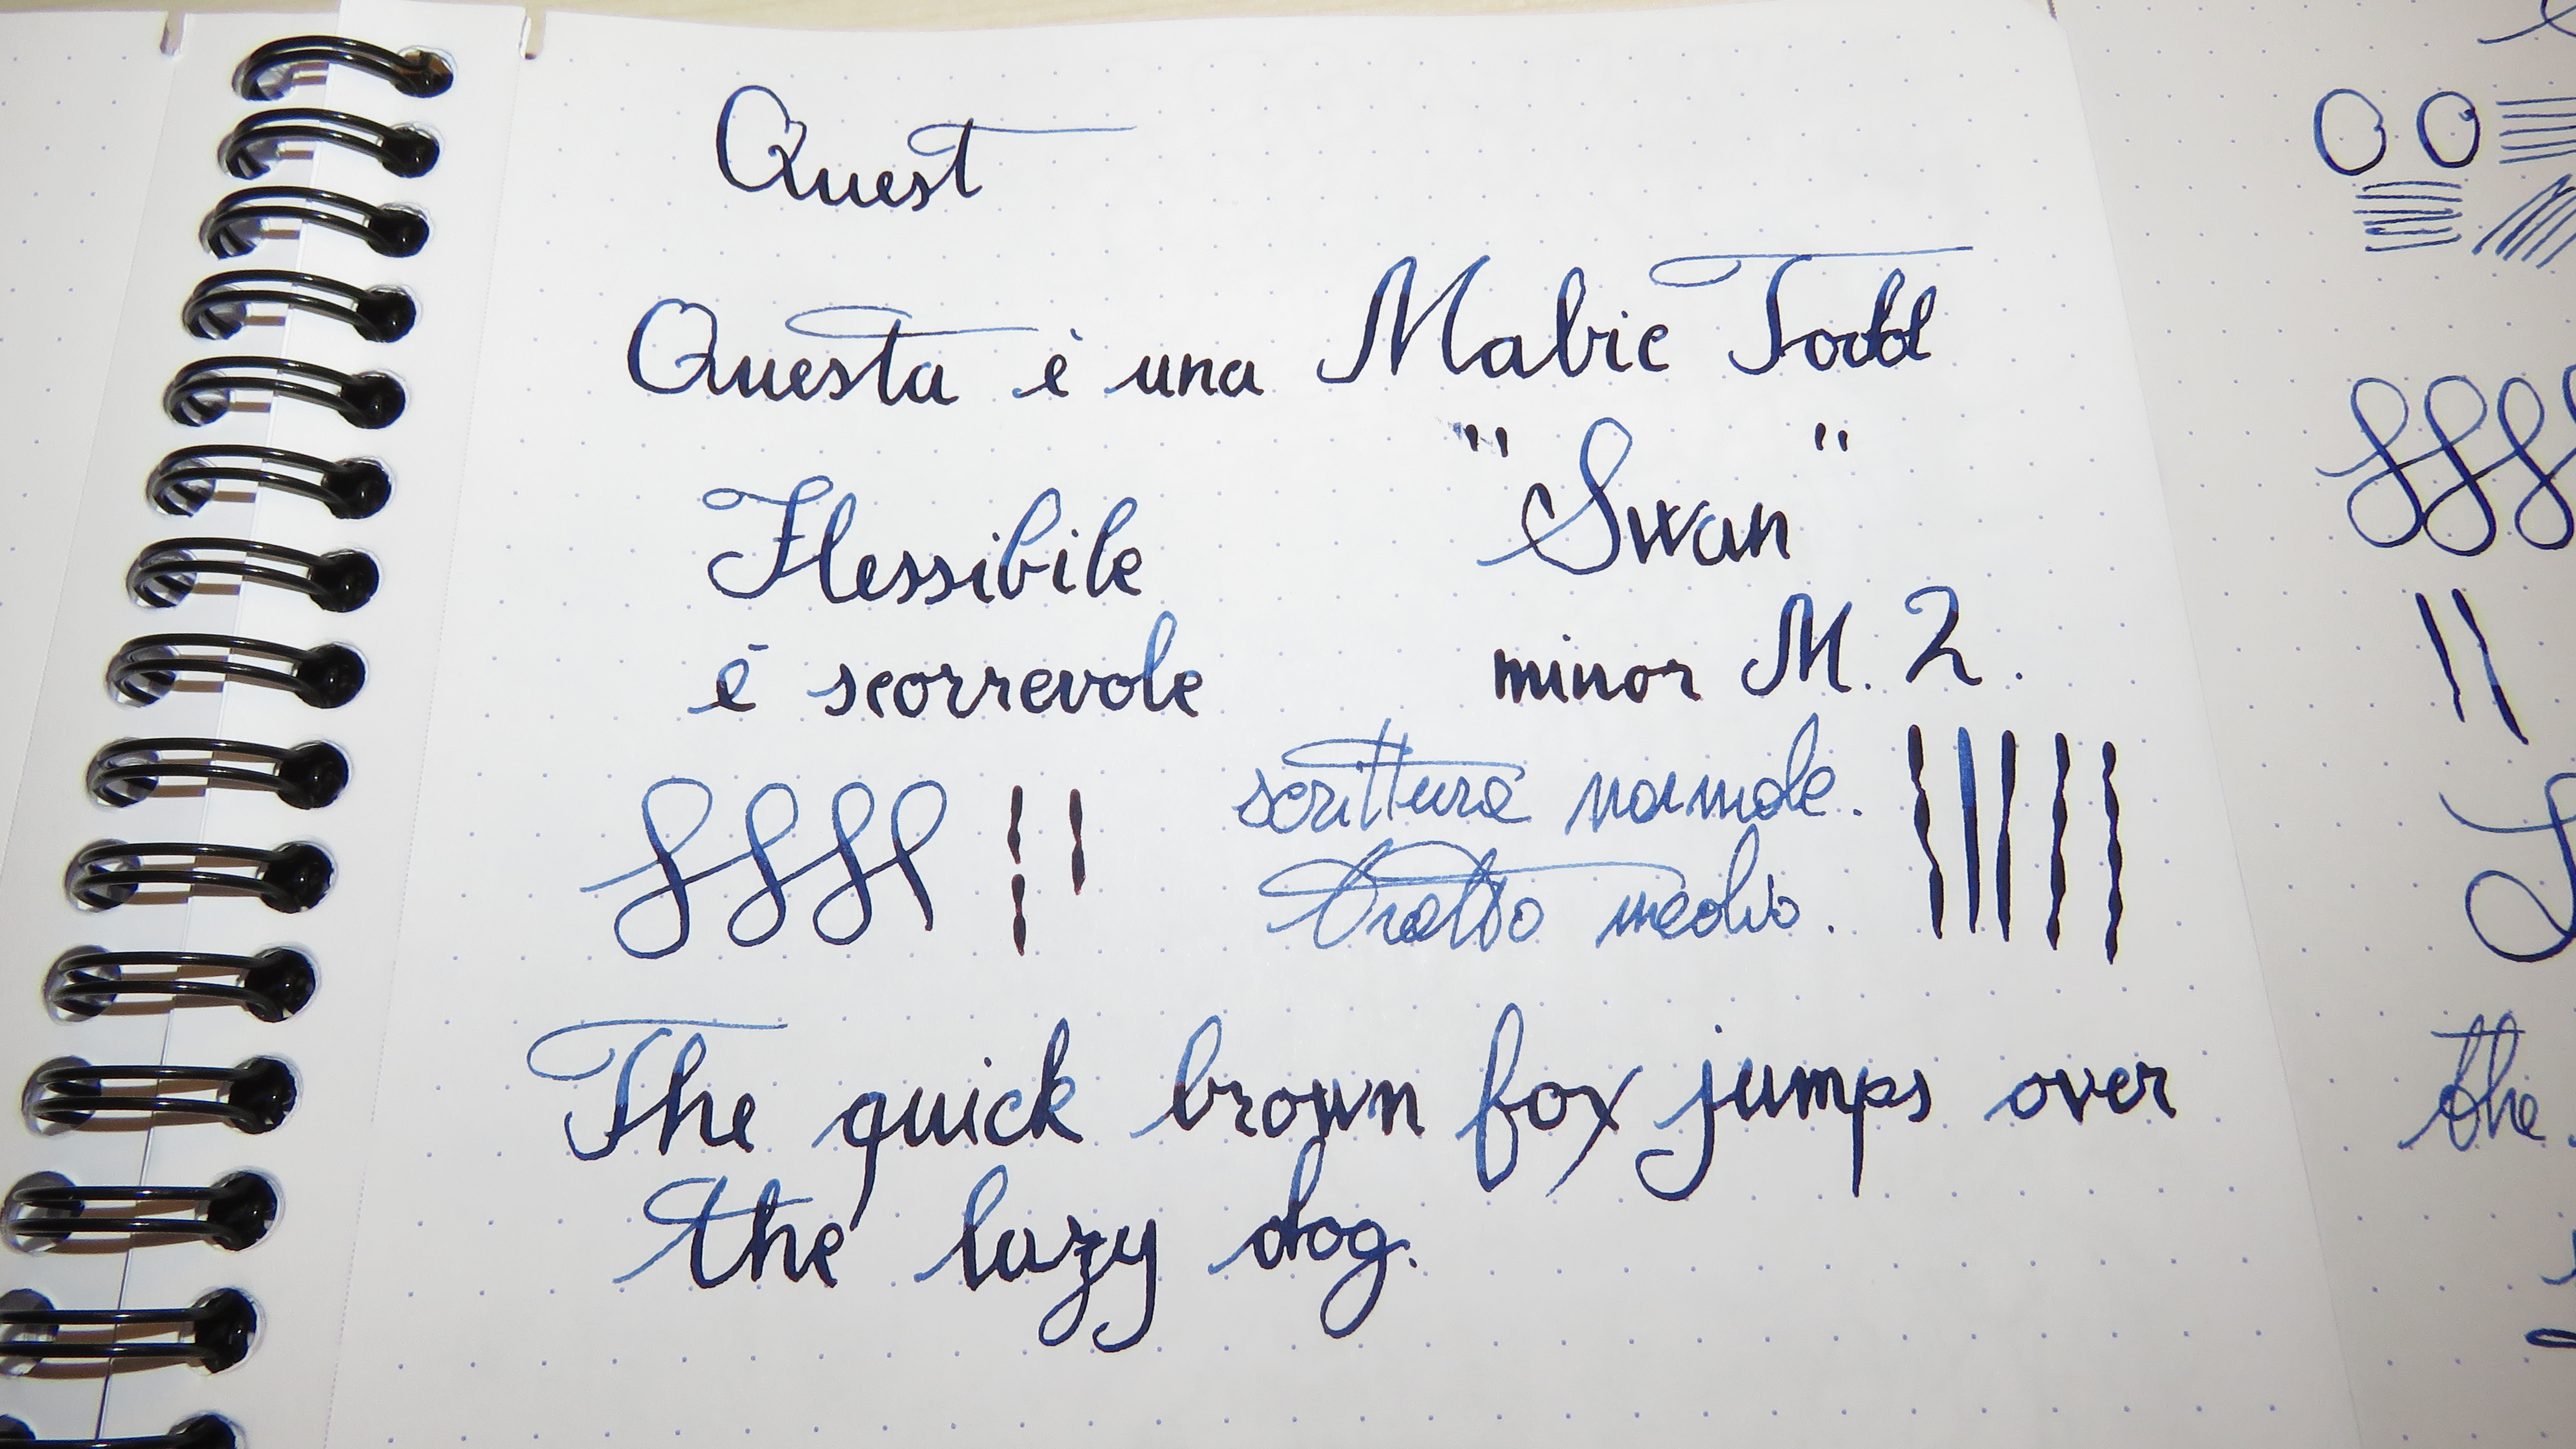 Quest
Questa è una Mabie Todd
"Swan"
Flessibile
è scorrevole
minor M. 2.
scrittura normale.
tratto medio.
The quick brown fox jumps over
the lazy dog.
the